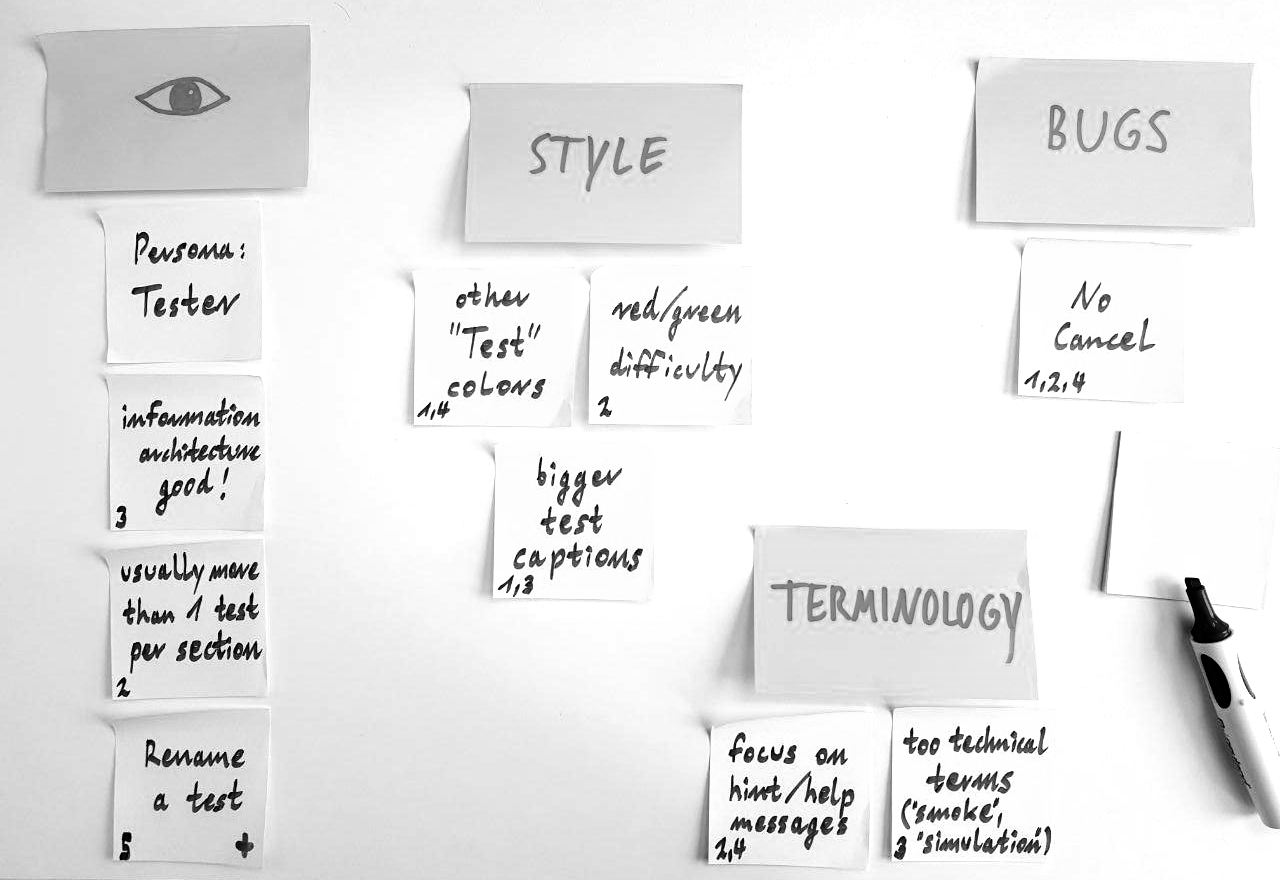 Persona:
Tester
information
architecture
good!
3
usually more
than 1 test
per section
2
Rename
a test
5 +
STYLE
other
"Test"
colors
1,4
red/green
difficulty
2
bigger
test
captions
1,3
BUGS
No
Cancel
1,2,4
TERMINOLOGY
focus on
hint/help
messages
2,4
too technical
terms
('smoke',
3 'simulation')